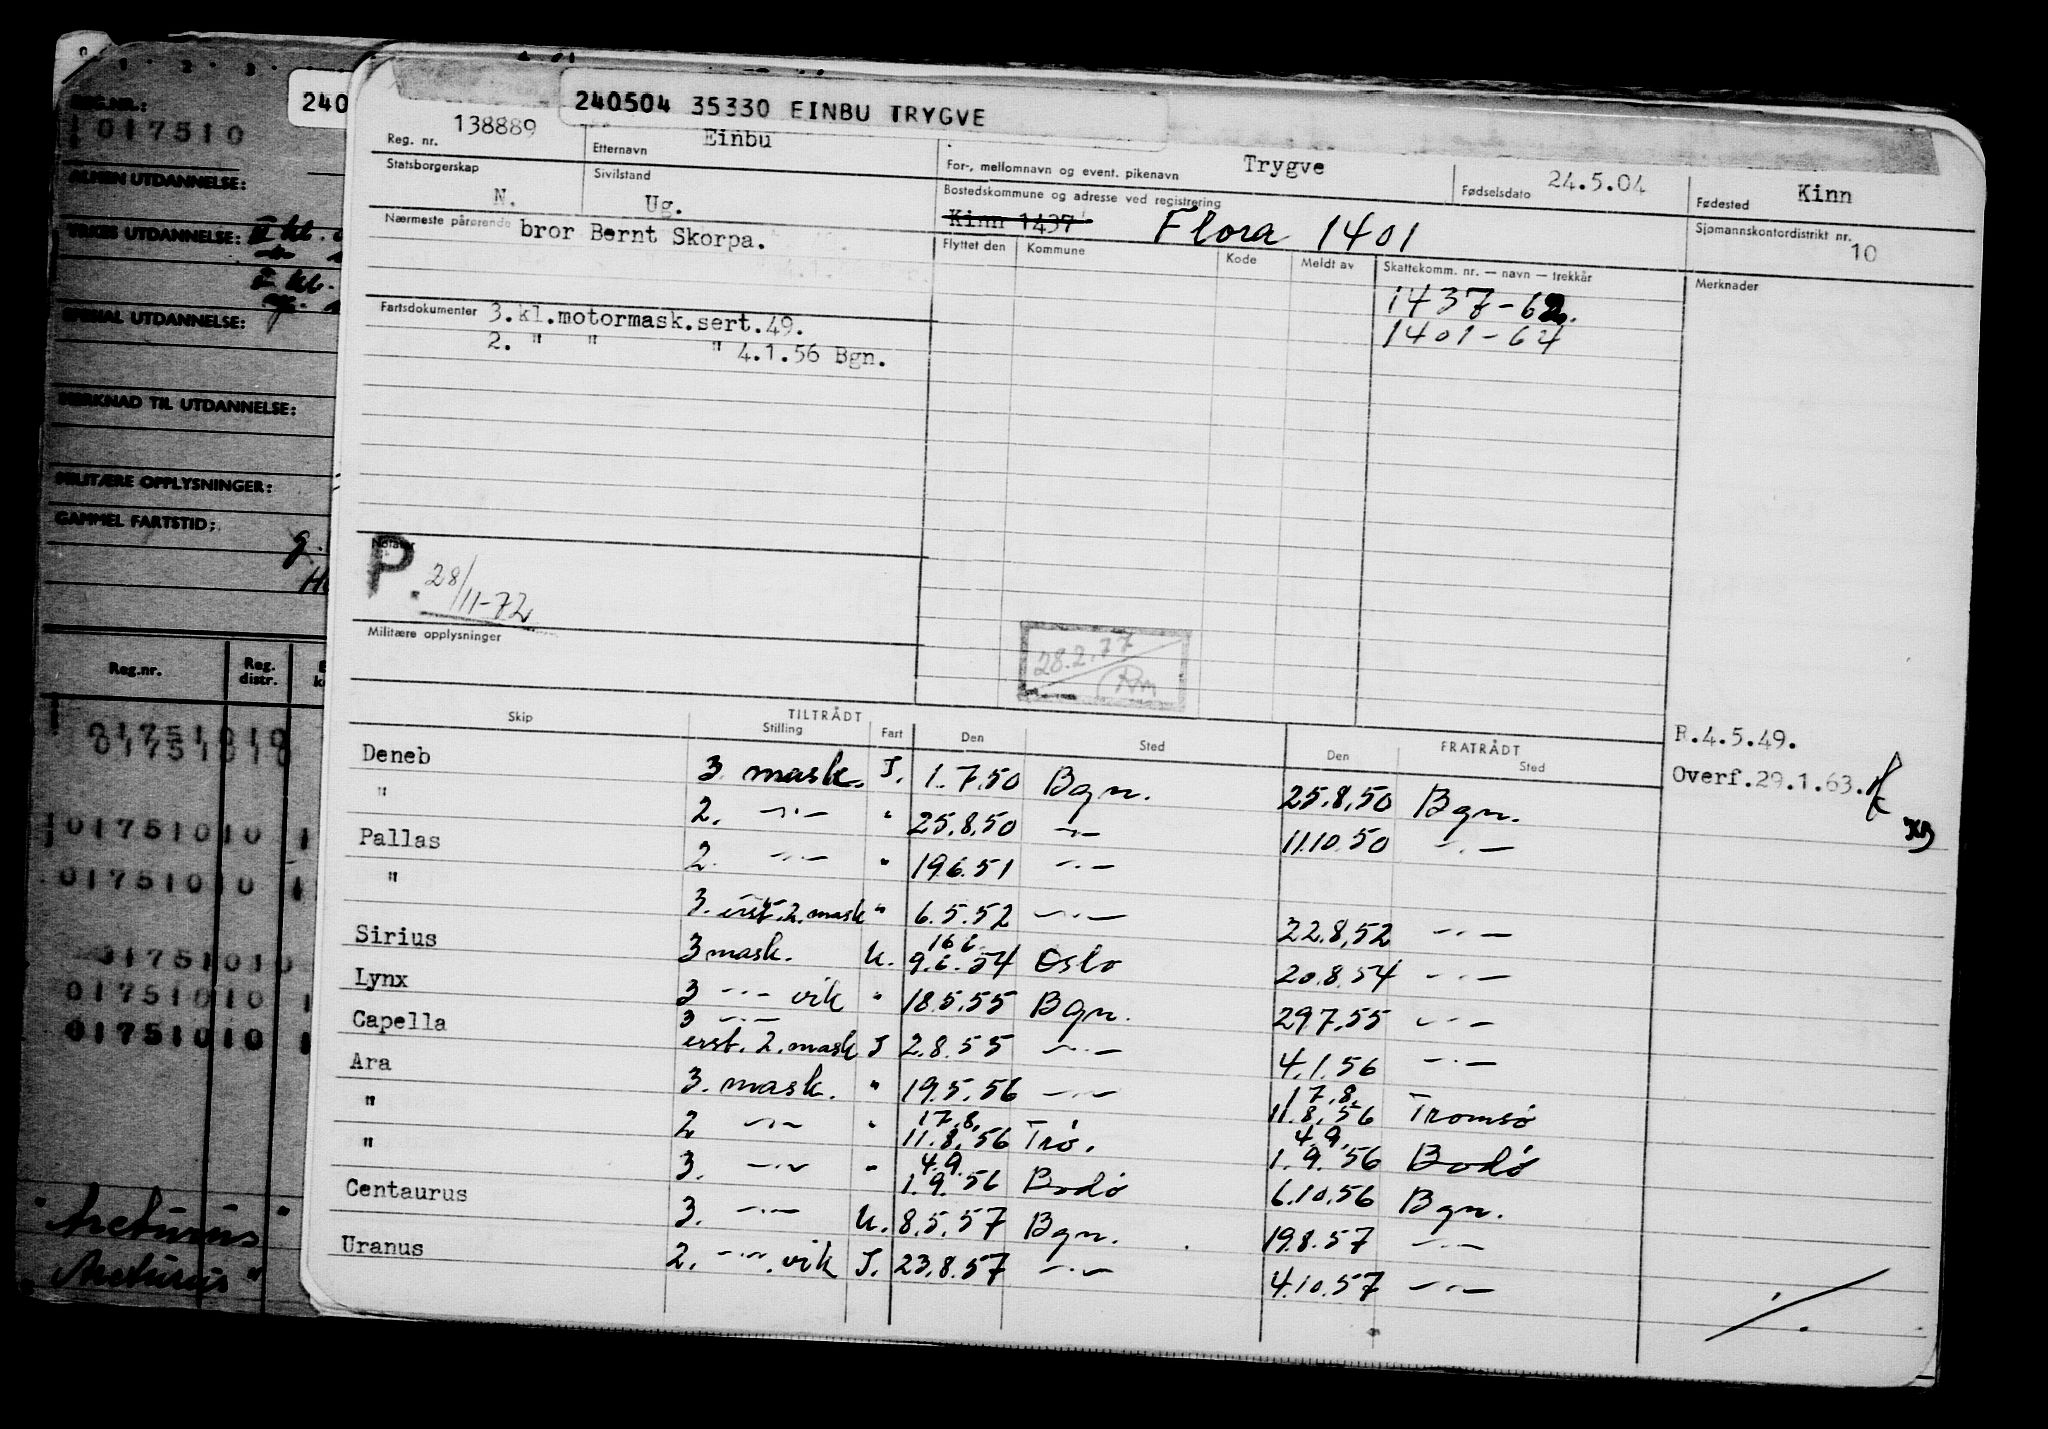 REG.NR.:
1017510
ALMEN UTDANNELSE:
YRKES UTDANNELSE: II kl.
II kl.
SPESIAL UTDANNELSE:
MERKNAD TIL UTDANNELSE:
MILITÆRE OPPLYSNINGER:
GAMMEL FARTSTID:
Reg.nr. Reg. distr.
01751010
01751010
01751010 1
01751010 1
01751010
01751010 1
01751010 1
"Arcturus"
"Arcturus"
240
240504 35330 EINBU TRYGVE
Reg. nr. 138889 Etternavn Einbu For-, mellomnavn og event. pikenavn Trygve Fødselsdato 24.5.04 Fødested Kinn
Statsborgerskap N. Sivilstand Ug. Bostedskommune og adresse ved registrering Kinn 1437 Flora 1401 Sjømannskontordistrikt nr. 10
Nærmeste pårørende bror Bernt Skorpa. Flyttet den Kommune Kode Meldt av Skattekomm. nr. — navn — trekkår Merknader
1437-62.
1401-64
Fartsdokumenter 3.kl.motormask.sert.49.
2. " " " 4.1.56 Bgn.
Notater
P. 28/11-72
Militære opplysninger
28.2.77
Rm
Skip TILTRÅDT Stilling Fart Den Sted FRATRÅDT Den Sted
R.4.5.49.
Overf.29.1.63.
Deneb 3. mask. I. 1.7.50 Bgn. 25.8.50 Bgn.
" 2. -"- " 25.8.50 -"- 11.10.50 -"-
Pallas 2. -"- " 19.6.51 -"-
" 3. erst. 2. mask " 6.5.52 -"- 22.8.52 -"-
Sirius 3 mask. U. 16.6. 9.6.54 Oslo 20.8.54 -"-
Lynx 3 -"- vik " 18.5.55 Bgn. 29.7.55 -"-
Capella 3 -"- erst. 2. mask I 2.8.55 -"- 4.1.56 -"-
Ara 3. mask. " 19.5.56 -"- 17.8. 11.8.56 Tromsø
" 2 -"- " 17.8. 11.8.56 Trø. 4.9. 1.9.56 Bodø
" 3. -"- " 4.9. 1.9.56 Bodø 6.10.56 Bgn.
Centaurus 3. -"- U. 8.5.57 Bgn. 19.8.57 -"-
Uranus 2. -"- vik I. 23.8.57 -"- 4.10.57 -"-